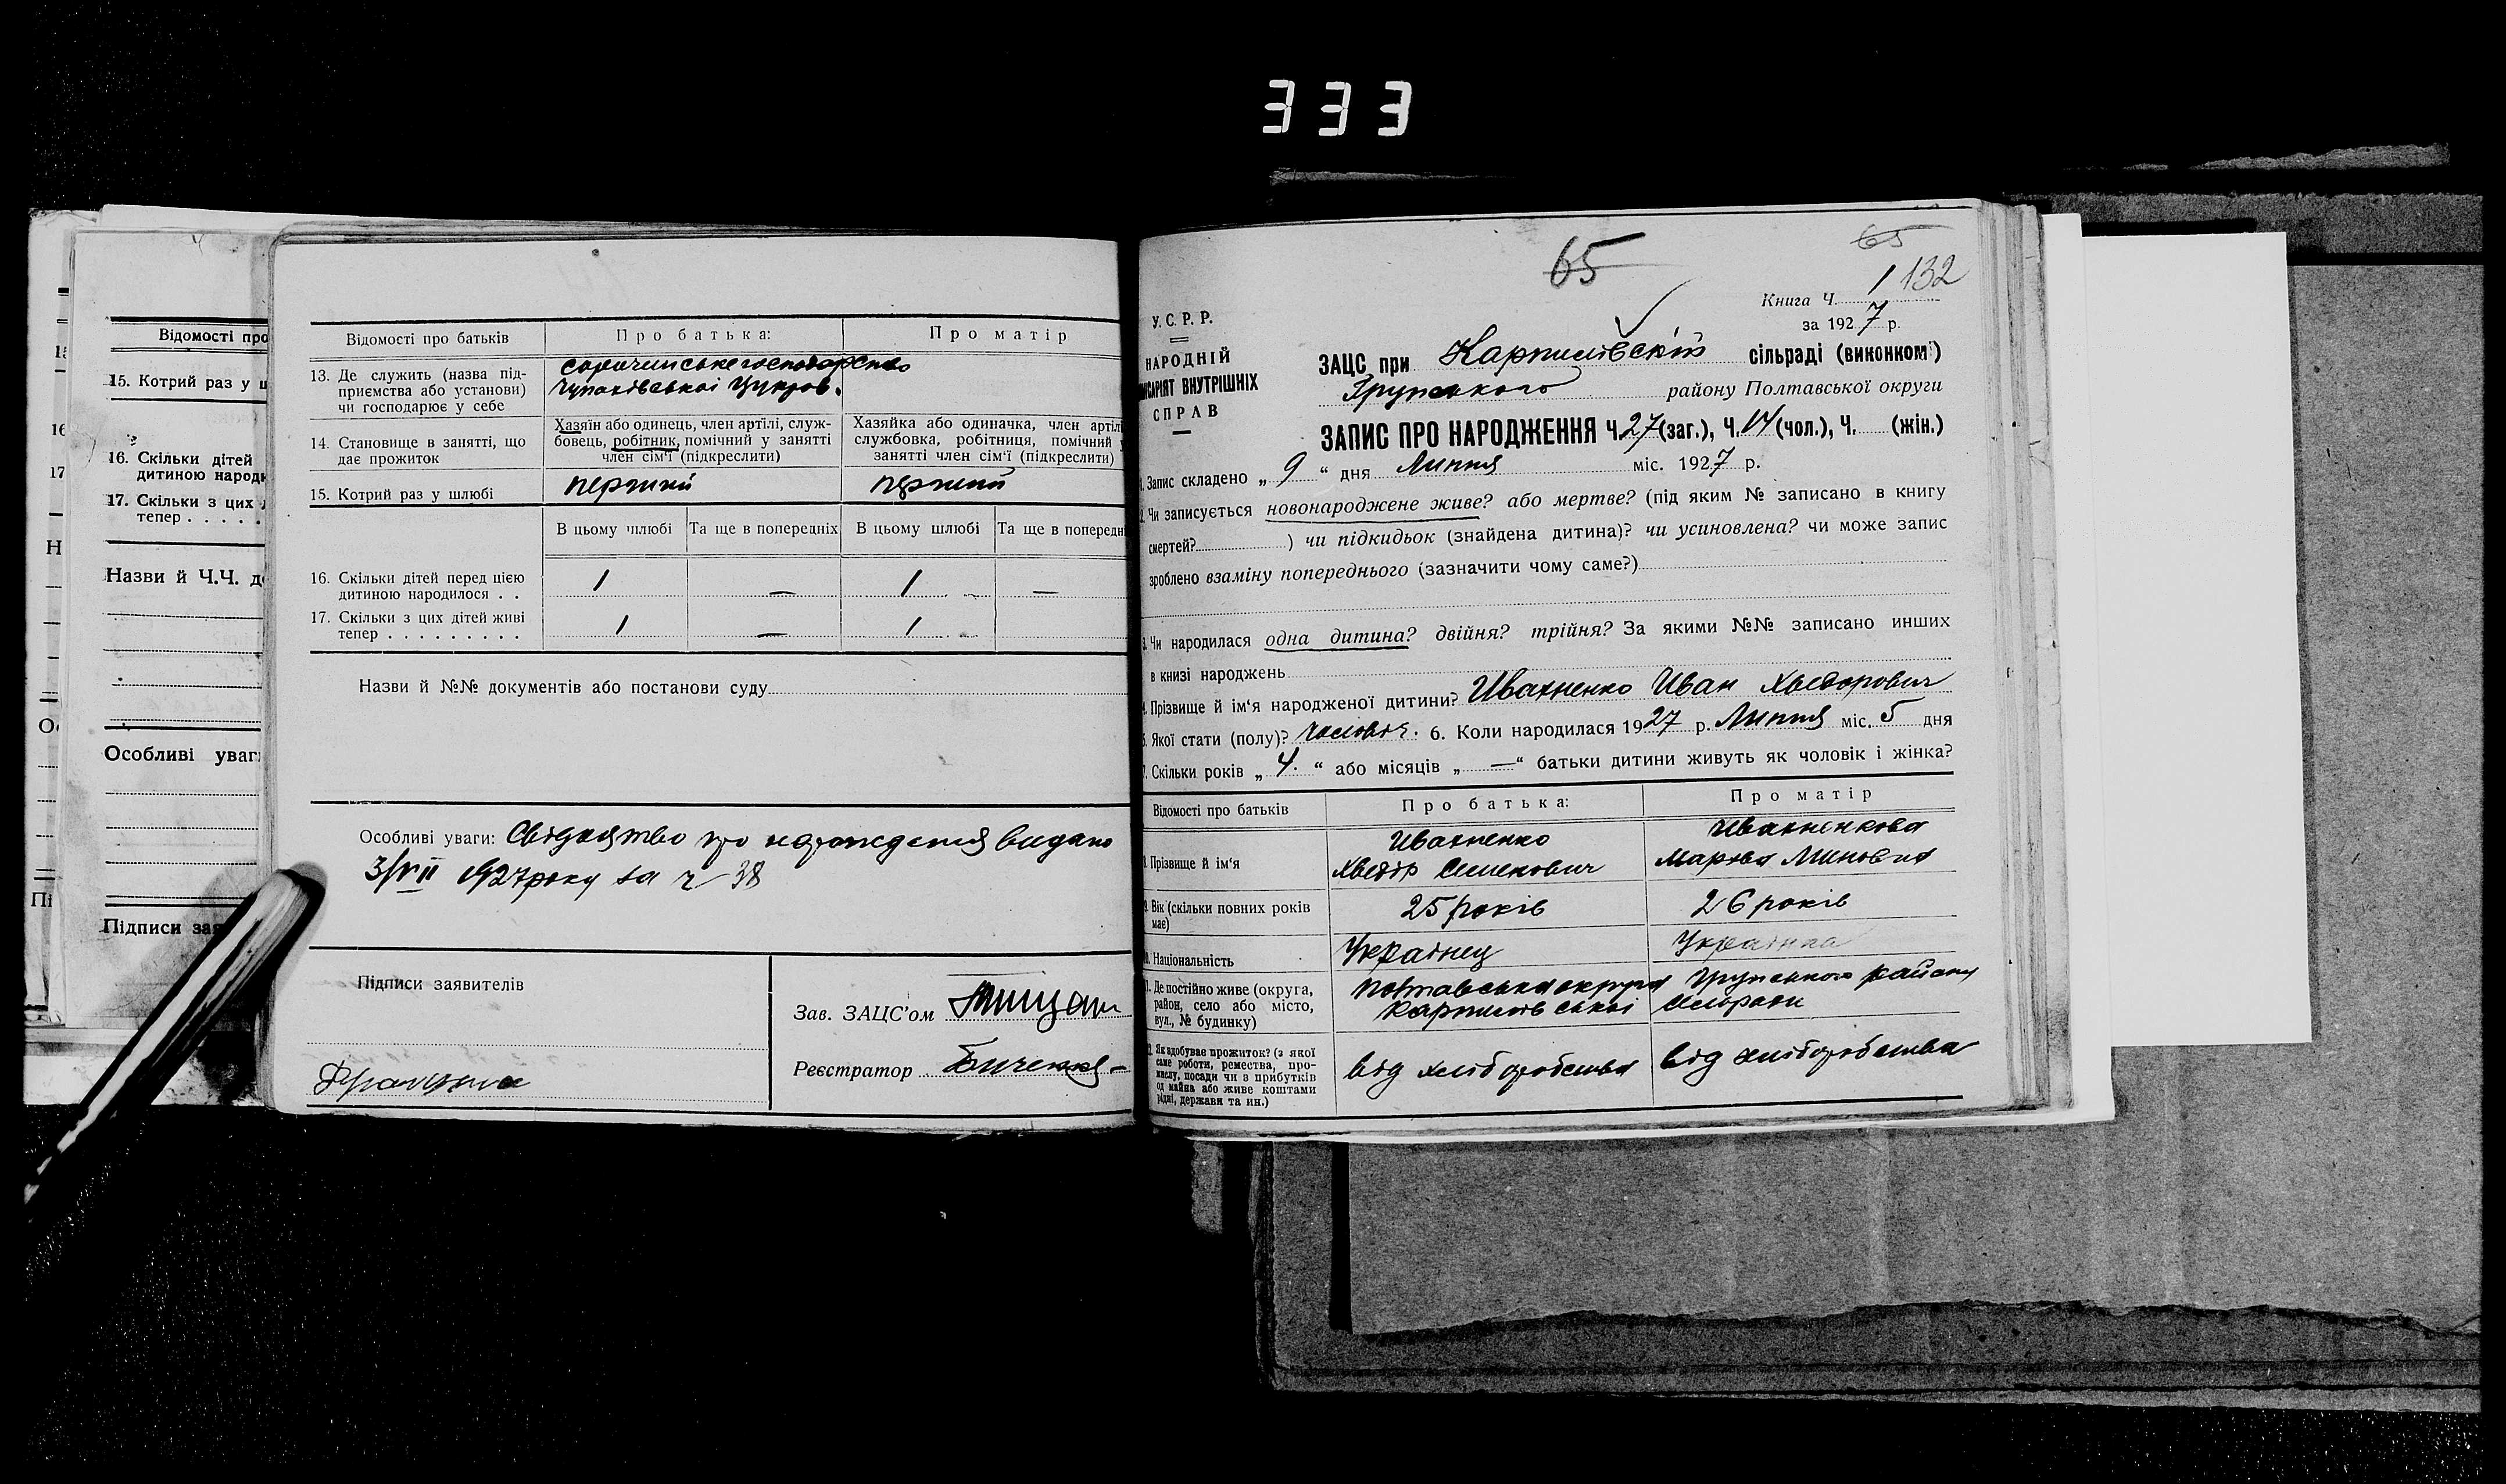 333
Відомості про
15. Котрий раз у ш
16. Скільки дітей
дитиною народи
17. Скільки з цих д
тепер . . . . .
Назви й Ч.Ч. д
Особливі уваг
Підписи зая
Відомості про батьків
Про батька:
Про матір
13. Де служить (назва під-
приємства або установи)
чи господарює у себе
14. Становище в занятті, що
дає прожиток
Хазяїн або одинець, член артілі, служ-
бовець, робітник, помічний у занятті
член сім'ї (підкреслити)
Хазяйка або одиначка, член артілі
службовка, робітниця, помічний у
занятті член сім'ї (підкреслити)
15. Котрий раз у шлюбі
перший
перший
В цьому шлюбі
Та ще в попередніх
В цьому шлюбі
Та ще в попередн
16. Скільки дітей перед цією
дитиною народилося . .
1 — 1 —
17. Скільки з цих дітей живі
тепер . . . . . . . . .
1 — 1
Назви й №№ документів або постанови суду
Особливі уваги: Свідоцтво про народження видано
3/VII 1927 року за ч 38
Підписи заявителів
Зав. ЗАЦС'ом
Реєстратор
65
65
132
Книга Ч. 1
за 1927 р.
У.С.Р.Р.
НАРОДНІЙ
КОМІСАРІЯТ ВНУТРІШНІХ
СПРАВ
ЗАЦС при Карпилівській сільраді (виконком)
Грунського району Полтавської округи
ЗАПИС ПРО НАРОДЖЕННЯ Ч. 27 (заг.), Ч. 14 (чол.), Ч. (жін.)
1. Запис складено „ 9 “ дня Липня міс. 1927 р.
2. Чи записується новонароджене живе? або мертве? (під яким № записано в книгу
смертей? ) чи підкидьок (знайдена дитина)? чи усиновлена? чи може запис
зроблено взаміну попереднього (зазначити чому саме?)
3. Чи народилася одна дитина? двійня? трійня? За якими №№ записано инших
в книзі народжень
4. Прізвище й ім'я народженої дитини? Ивахненко Иван Хведорович
5. Якої стати (полу)? чоловіч. 6. Коли народилася 1927 р. Липня міс. 5 дня
7. Скільки років „ 4. “ або місяців „ — “ батьки дитини живуть як чоловік і жінка?
Відомості про батьків
Про батька:
Про матір
8. Прізвище й ім'я
Ивахненко
Хведір Семенович
Ивахненкова
Марфа Миновна
9. Вік (скільки повних років
має)
25 років
26 років
10. Національність
Українец
Українка
11. Де постійно живе (округа,
район, село або місто,
вул., № будинку)
Полтавська округа Грунського району
Карпилівської сільради
12. Як здобуває прожиток? (з якої
саме роботи, ремества, про-
мислу, посади чи з прибутків
од майна або живе коштами
рідні, держави та ин.)
від хліборобства
від хліборобства